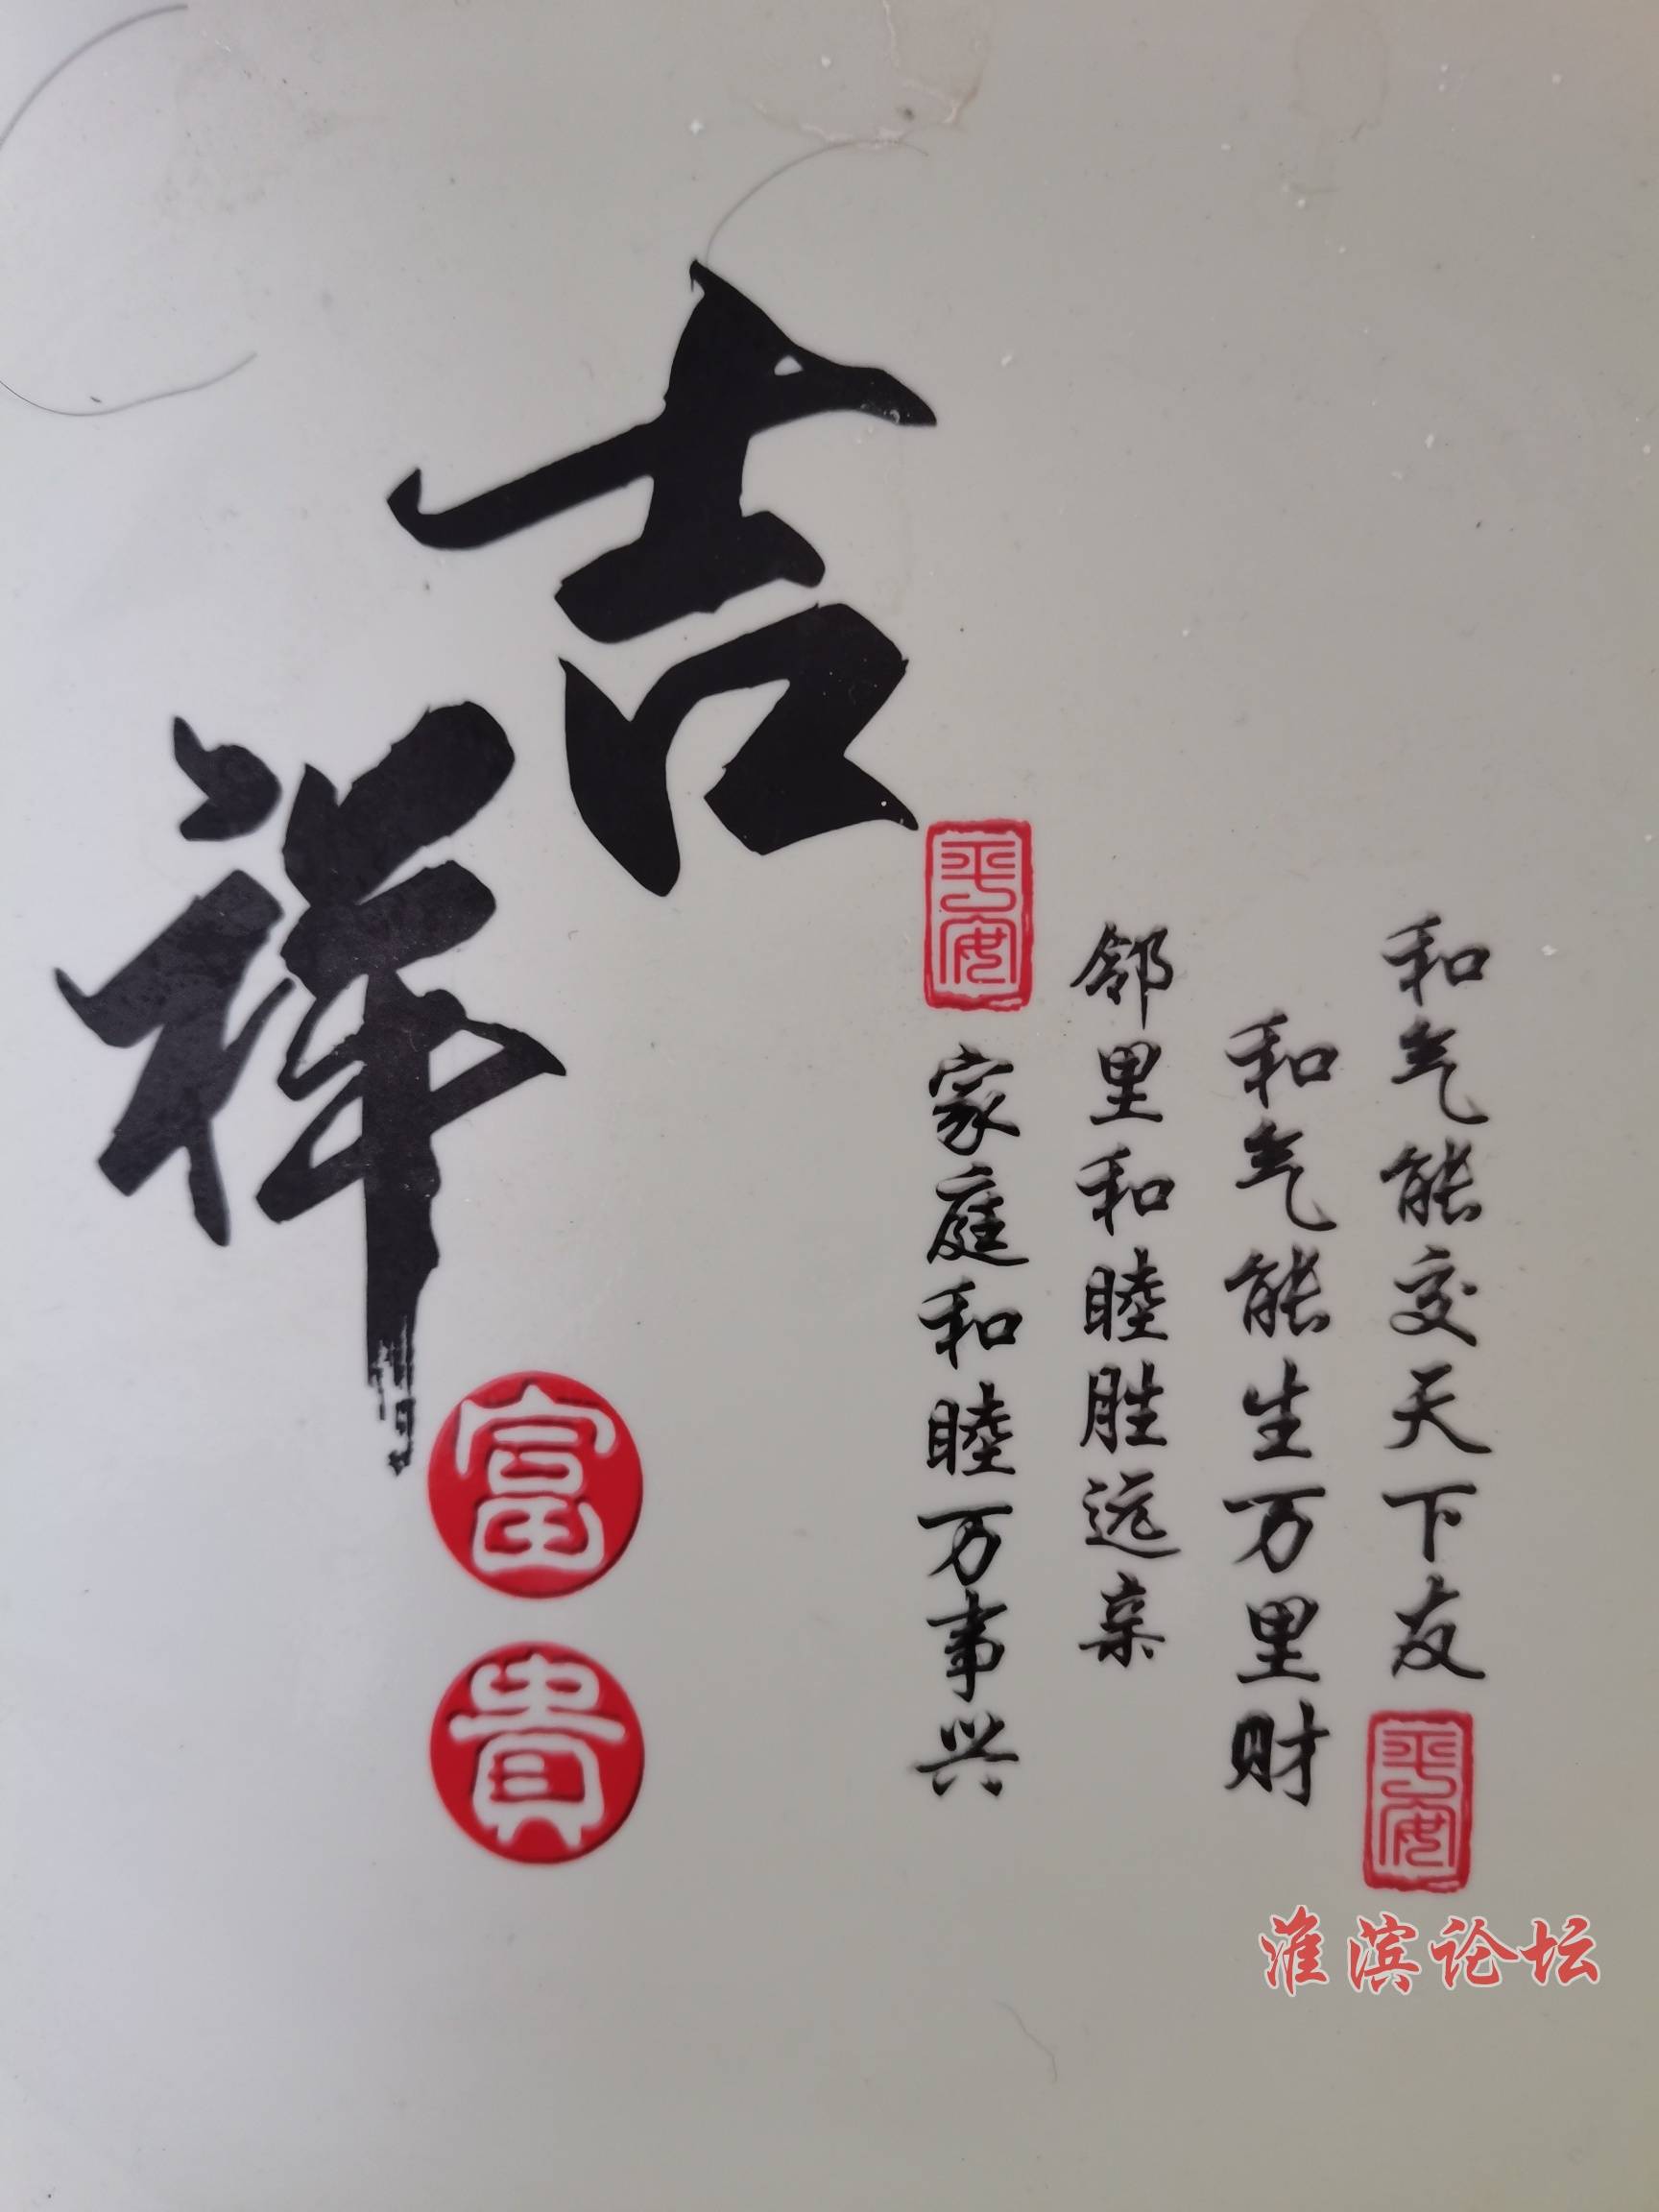 和气能交天下友
平安
和气能生万里财
邻里和睦胜远亲
平安
家庭和睦万事兴
吉祥
富貴
淮滨论坛